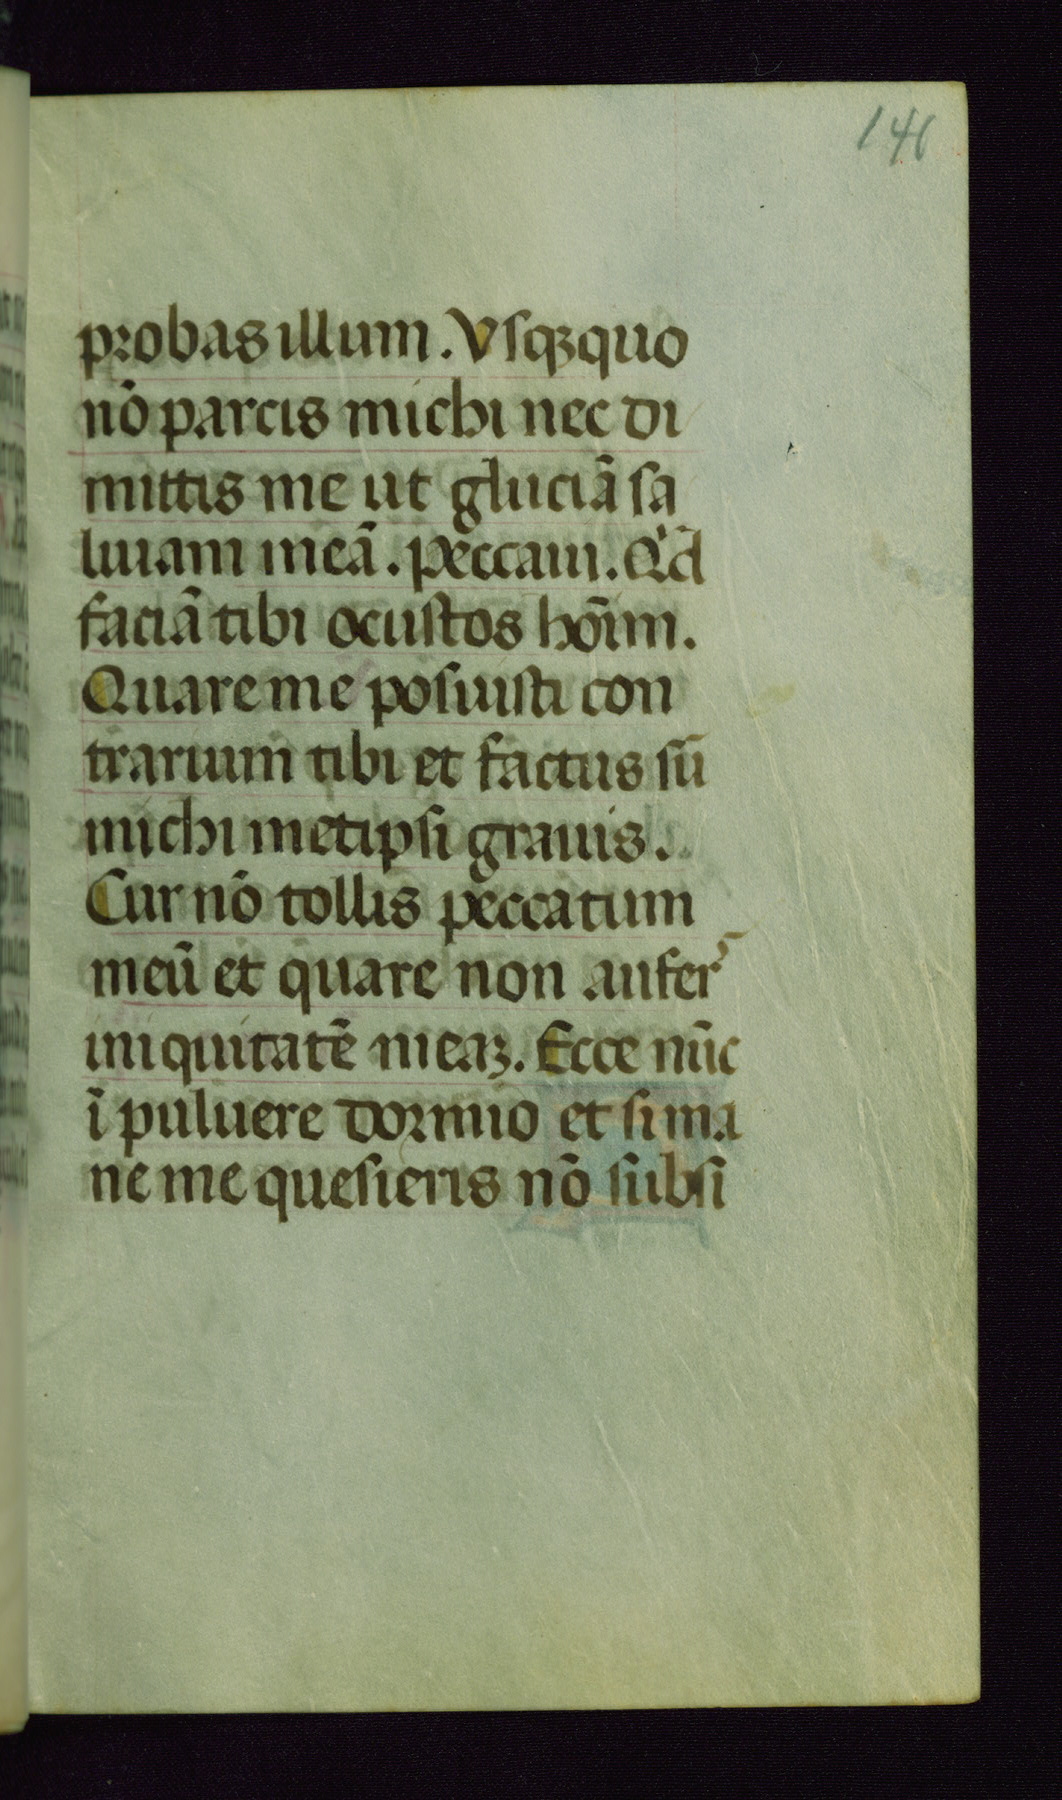 146
probas illum. Vsqꝫquo
nō parcis michi nec di
mittis me ut gluciā sa
liuam meā. peccaui. Qͥd
faciā tibi o custos hoīm.
Quare me posuisti con
trarium tibi et factus sū
michi metipsi grauis.
Cur nō tollis peccatum
meū et quare non aufer᷑
iniquitatē meaꝫ. Ecce nūc
ī puluere dormio et si ma
ne me quesieris nō subsi